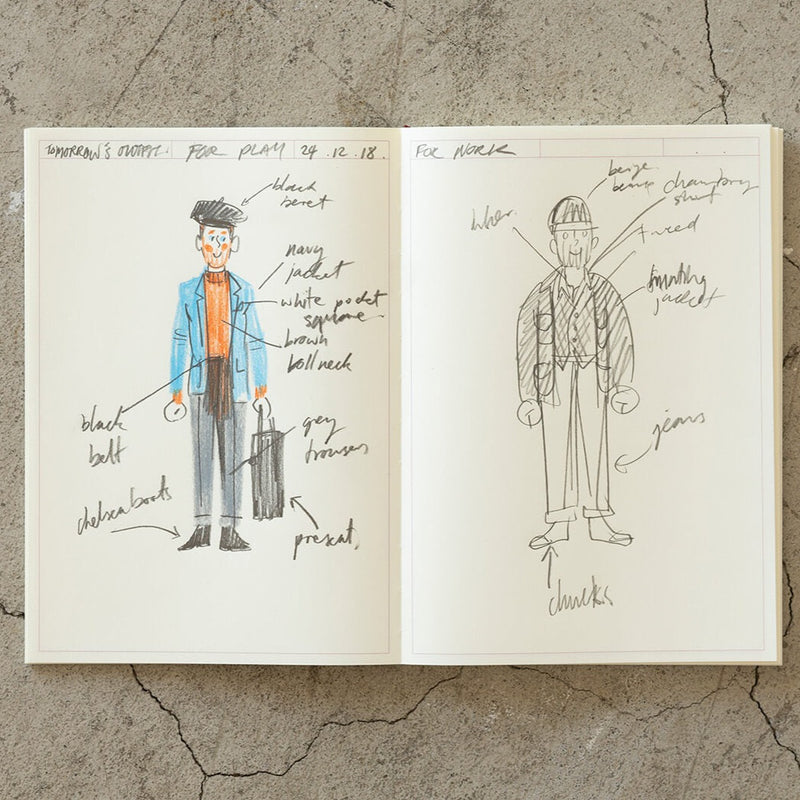 TOMORROW'S OUTFIT. FOR PLAY 24.12.18.
black
beret
navy
jacket
white pocket
square
brown
roll neck
black
belt
grey
trousers
chelsea boots
present,
FOR WORK
beige
chambray
shirt
tweed
jacket
jeans
chucks